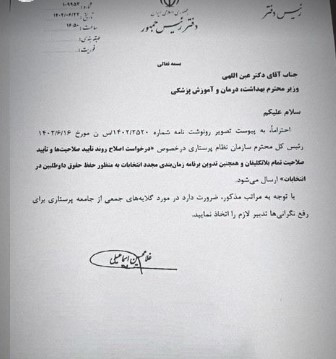 رئیس دفتر
جمهوری اسلامی ایران
دفتر رئیس جمهور
بسمه تعالی
جناب آقای دکتر عین اللهی
وزیر محترم بهداشت، درمان و آموزش پزشکی
سلام علیکم
احتراماً، به پیوست تصویر رونوشت نامه شماره ۱۴۰۲/۲۵۲۰/س ن مورخ ۱۴۰۲/۶/۱۶
رئیس کل محترم سازمان نظام پرستاری درخصوص «درخواست اصلاح روند تأیید صلاحیت‌ها و تأیید
صلاحیت تمام بلاتکلیفان و همچنین تدوین برنامه زمان‌بندی مجدد انتخابات به منظور حفظ حقوق داوطلبین در
انتخابات» ارسال می‌شود.
با توجه به مراتب مذکور، ضرورت دارد در مورد گلایه‌های جمعی از جامعه پرستاری برای
رفع نگرانی‌ها تدبیر لازم را اتخاذ نمایید.
غلامحسین اسماعیلی